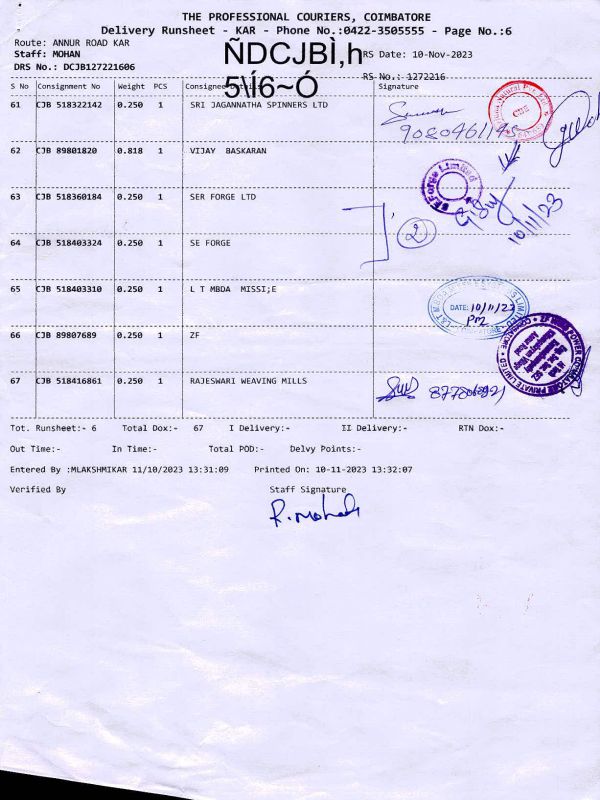 THE PROFESSIONAL COURIERS, COIMBATORE
Delivery Runsheet - KAR - Phone No.:0422-3505555 - Page No.:6
Route: ANNUR ROAD KAR
Staff: MOHAN
ÑDCJBÌ,h
RS Date: 10-Nov-2023
DRS No.: DCJB127221606
5\Í6~Ó
RS No.: 1272216
S No Consignment No Weight PCS Consignee Details Signature
61 CJB 518322142 0.250 1 SRI JAGANNATHA SPINNERS LTD
CBE
62 CJB 89801820 0.818 1 VIJAY BASKARAN
63 CJB 518360184 0.250 1 SER FORGE LTD
Forge Limited
10/11/23
64 CJB 518403324 0.250 1 SE FORGE
2
65 CJB 518403310 0.250 1 L T MBDA MISSI;E
DATE: 10/11/23
66 CJB 89807689 0.250 1 ZF
67 CJB 518416861 0.250 1 RAJESWARI WEAVING MILLS
Tot. Runsheet:- 6 Total Dox:- 67 I Delivery:- II Delivery:- RTN Dox:-
Out Time:- In Time:- Total POD:- Delvy Points:-
Entered By :MLAKSHMIKAR 11/10/2023 13:31:09 Printed On: 10-11-2023 13:32:07
Verified By Staff Signature
R. Mohan